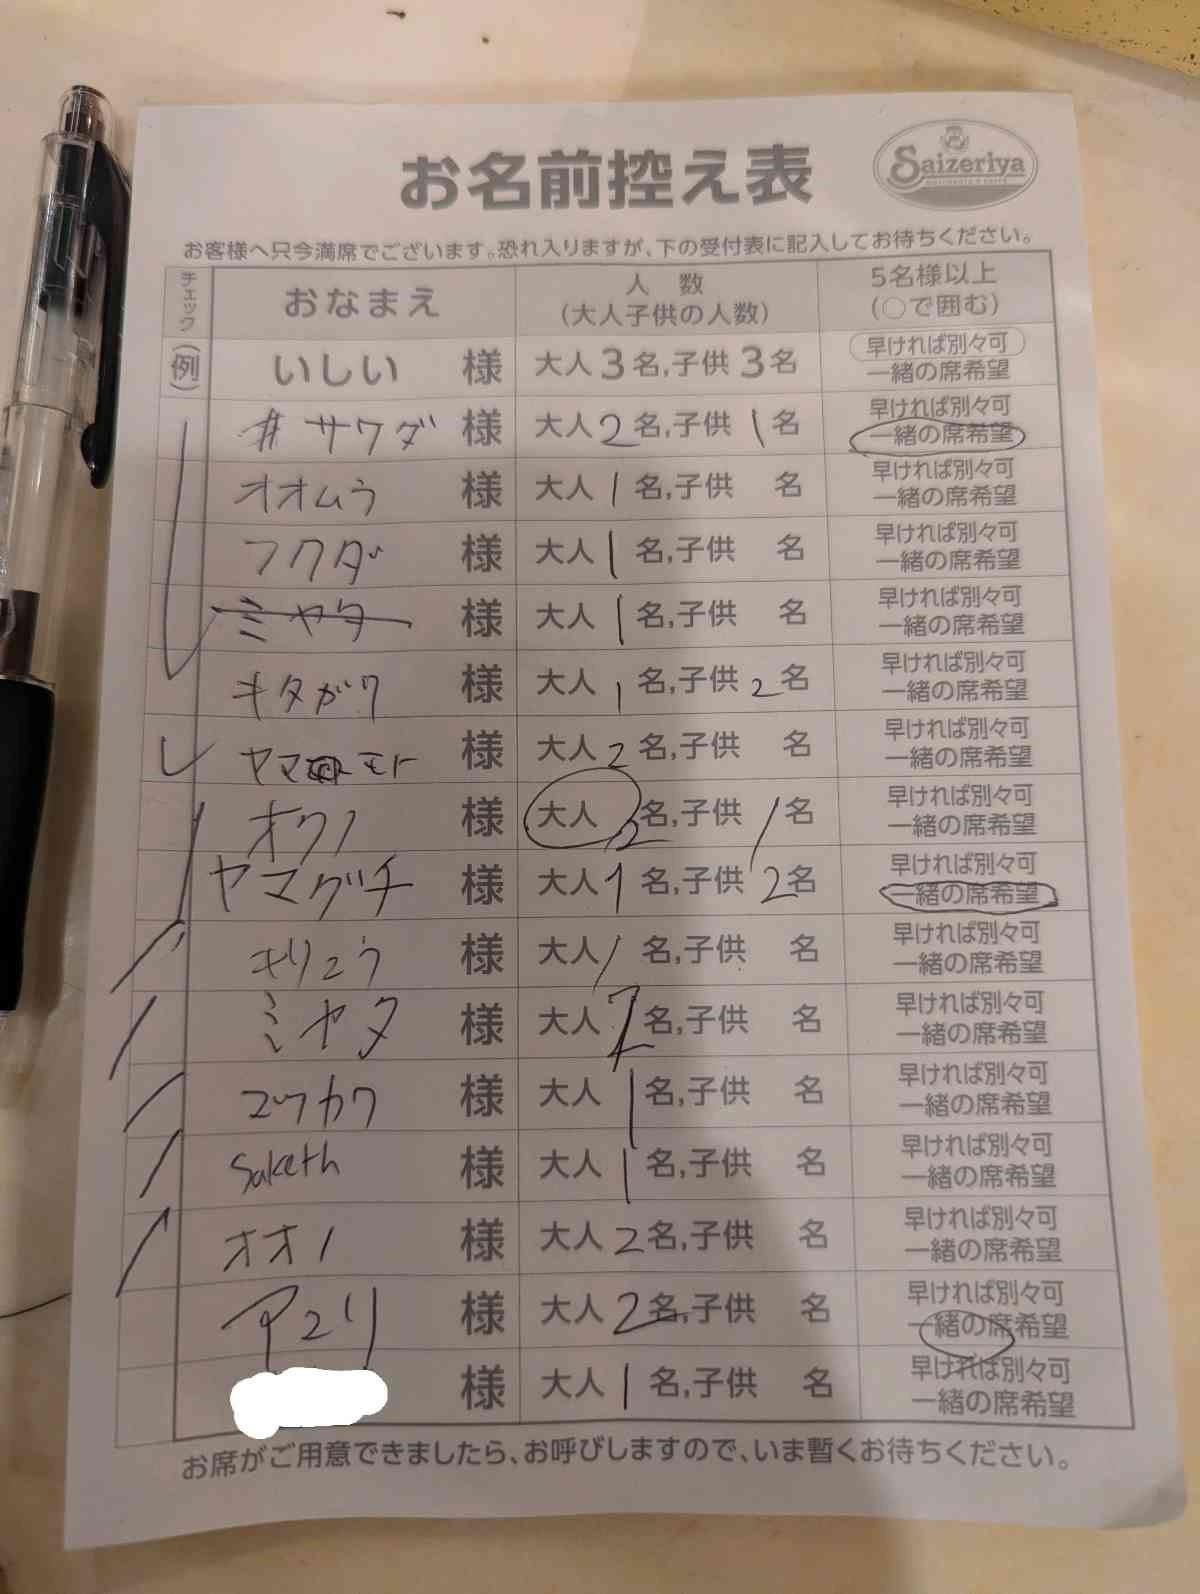 お名前控え表
Saizeriya
お客様へ只今満席でございます。恐れ入りますが、下の受付表に記入してお待ちください。
チェック おなまえ 人数 (大人子供の人数) 5名様以上 (○で囲む)
(例) いしい 様 大人3名,子供3名 早ければ別々可 一緒の席希望
# サワダ 様 大人2名,子供1名 早ければ別々可 一緒の席希望
オオムラ 様 大人1名,子供 名 早ければ別々可 一緒の席希望
フクダ 様 大人1名,子供 名 早ければ別々可 一緒の席希望
ミヤタ 様 大人1名,子供 名 早ければ別々可 一緒の席希望
キタガワ 様 大人1名,子供2名 早ければ別々可 一緒の席希望
ヤマモト 様 大人2名,子供 名 早ければ別々可 一緒の席希望
オクノ 様 大人2名,子供1名 早ければ別々可 一緒の席希望
ヤマグチ 様 大人1名,子供2名 早ければ別々可 一緒の席希望
キリュウ 様 大人1名,子供 名 早ければ別々可 一緒の席希望
ミヤタ 様 大人2名,子供 名 早ければ別々可 一緒の席希望
様 大人1名,子供 名 早ければ別々可 一緒の席希望
Saketh 様 大人1名,子供 名 早ければ別々可 一緒の席希望
オオノ 様 大人2名,子供 名 早ければ別々可 一緒の席希望
様 大人2名,子供 名 早ければ別々可 一緒の席希望
様 大人1名,子供 名 早ければ別々可 一緒の席希望
お席がご用意できましたら、お呼びしますので、いま暫くお待ちください。